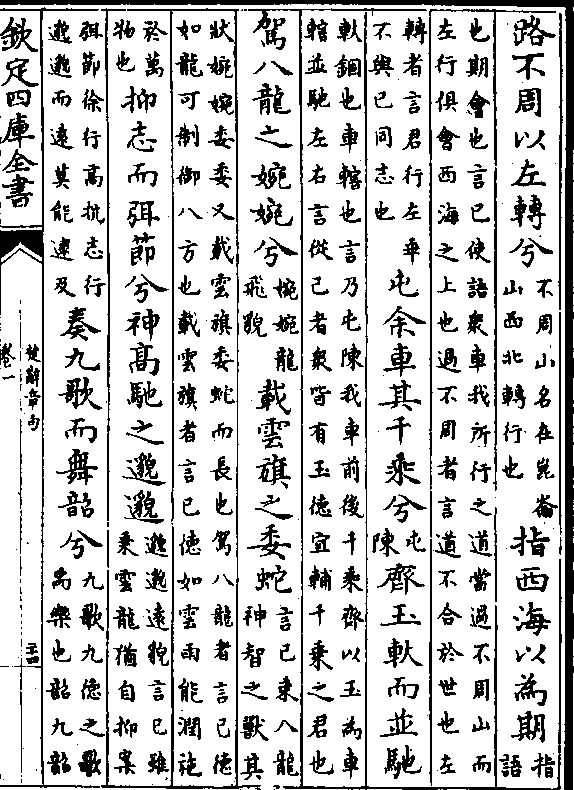 路不周以左轉兮不周山名在崑崙山西北轉行也指西海以為期指語
也期會也言已使語衆車我所行之道當過不周山而左行俱會西海之上也過不周者言道不合於世也左
轉者言君行左乖不與已同志也屯余車其千乘兮屯陳齊玉軑而並馳
軑錮也車轄也言乃屯陳我車前後千乘齊以玉為車轄並馳左右言從已者衆皆有玉德宜輔千乘之君也
駕八龍之婉婉兮婉婉龍飛貌載雲旗之委蛇言已乘八龍神智之獸其
狀婉婉委委又載雲旗委蛇而長也駕八龍者言已德如龍可制御八方也載雲旗者言已德如雲雨能潤施
於萬物也抑志而弭節兮神髙馳之邈邈邈邈遠貌言已雖乘雲龍猶自抑案
弭節徐行高抗志行邈邈而遠莫能逮及奏九歌而舞韶兮九歌九德之歌禹樂也韶九韶
欽定四庫全書
楚辭章句
卷一